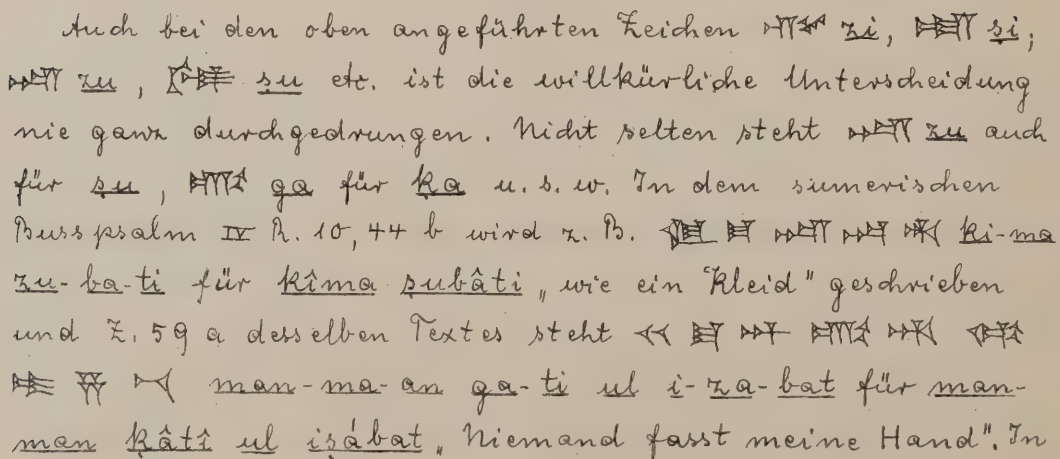 Auch bei den oben angeführten Zeichen 𒍣 zi, 𒍢 ṣi,
𒍪 zu, 𒍮 ṣu etc. ist die willkürliche Unterscheidung
nie ganz durchgedrungen. Nicht selten steht 𒍪 zu auch
für ṣu, 𒂵 ga für ḳa u. s. w. In dem sumerischen
Busspsalm IV R. 10, 44 b wird z. B. 𒆠 𒈠 𒍪 𒁀 𒋾 ki-ma
zu-ba-ti für kîma ṣubâti „wie ein Kleid" geschrieben
und Z. 59 a desselben Textes steht 𒎙 𒈠 𒀭 𒂵 𒋾 𒌌
𒄿 𒍝 𒁁 man-ma-an ga-ti ul i-za-bat für man-
man ḳâtî ul iṣábat „Niemand fasst meine Hand". In